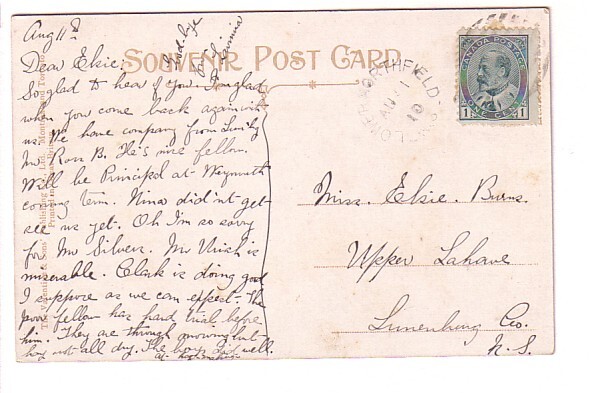 Aug 11th
Goodbye
SOUVENIR POST CARD
Dear Elsie:
So glad to hear of you. I'm glad
when you come back again with
us. We have company from
Mr Ross B. He's nice fellow.
Will be Principal at Weymouth
coming term. Nina didn't get
see us yet. Oh I'm so sorry
for Mr Silver. Mr is
miserable. Clark is doing good
I suppose as we can expect. The
poor fellow has hard trial before
him. They are through mowing but
hay not all dry. The boys did well.
The Valentine & Sons Publishing Co. Ltd. Montreal and Toronto
Printed in
NORTHFIELD
AU 11
10
CANADA POSTAGE
1 ONE CENT 1
Miss. Elsie. Burns.
Upper Lahave
Lunenburg Co.
N.S.